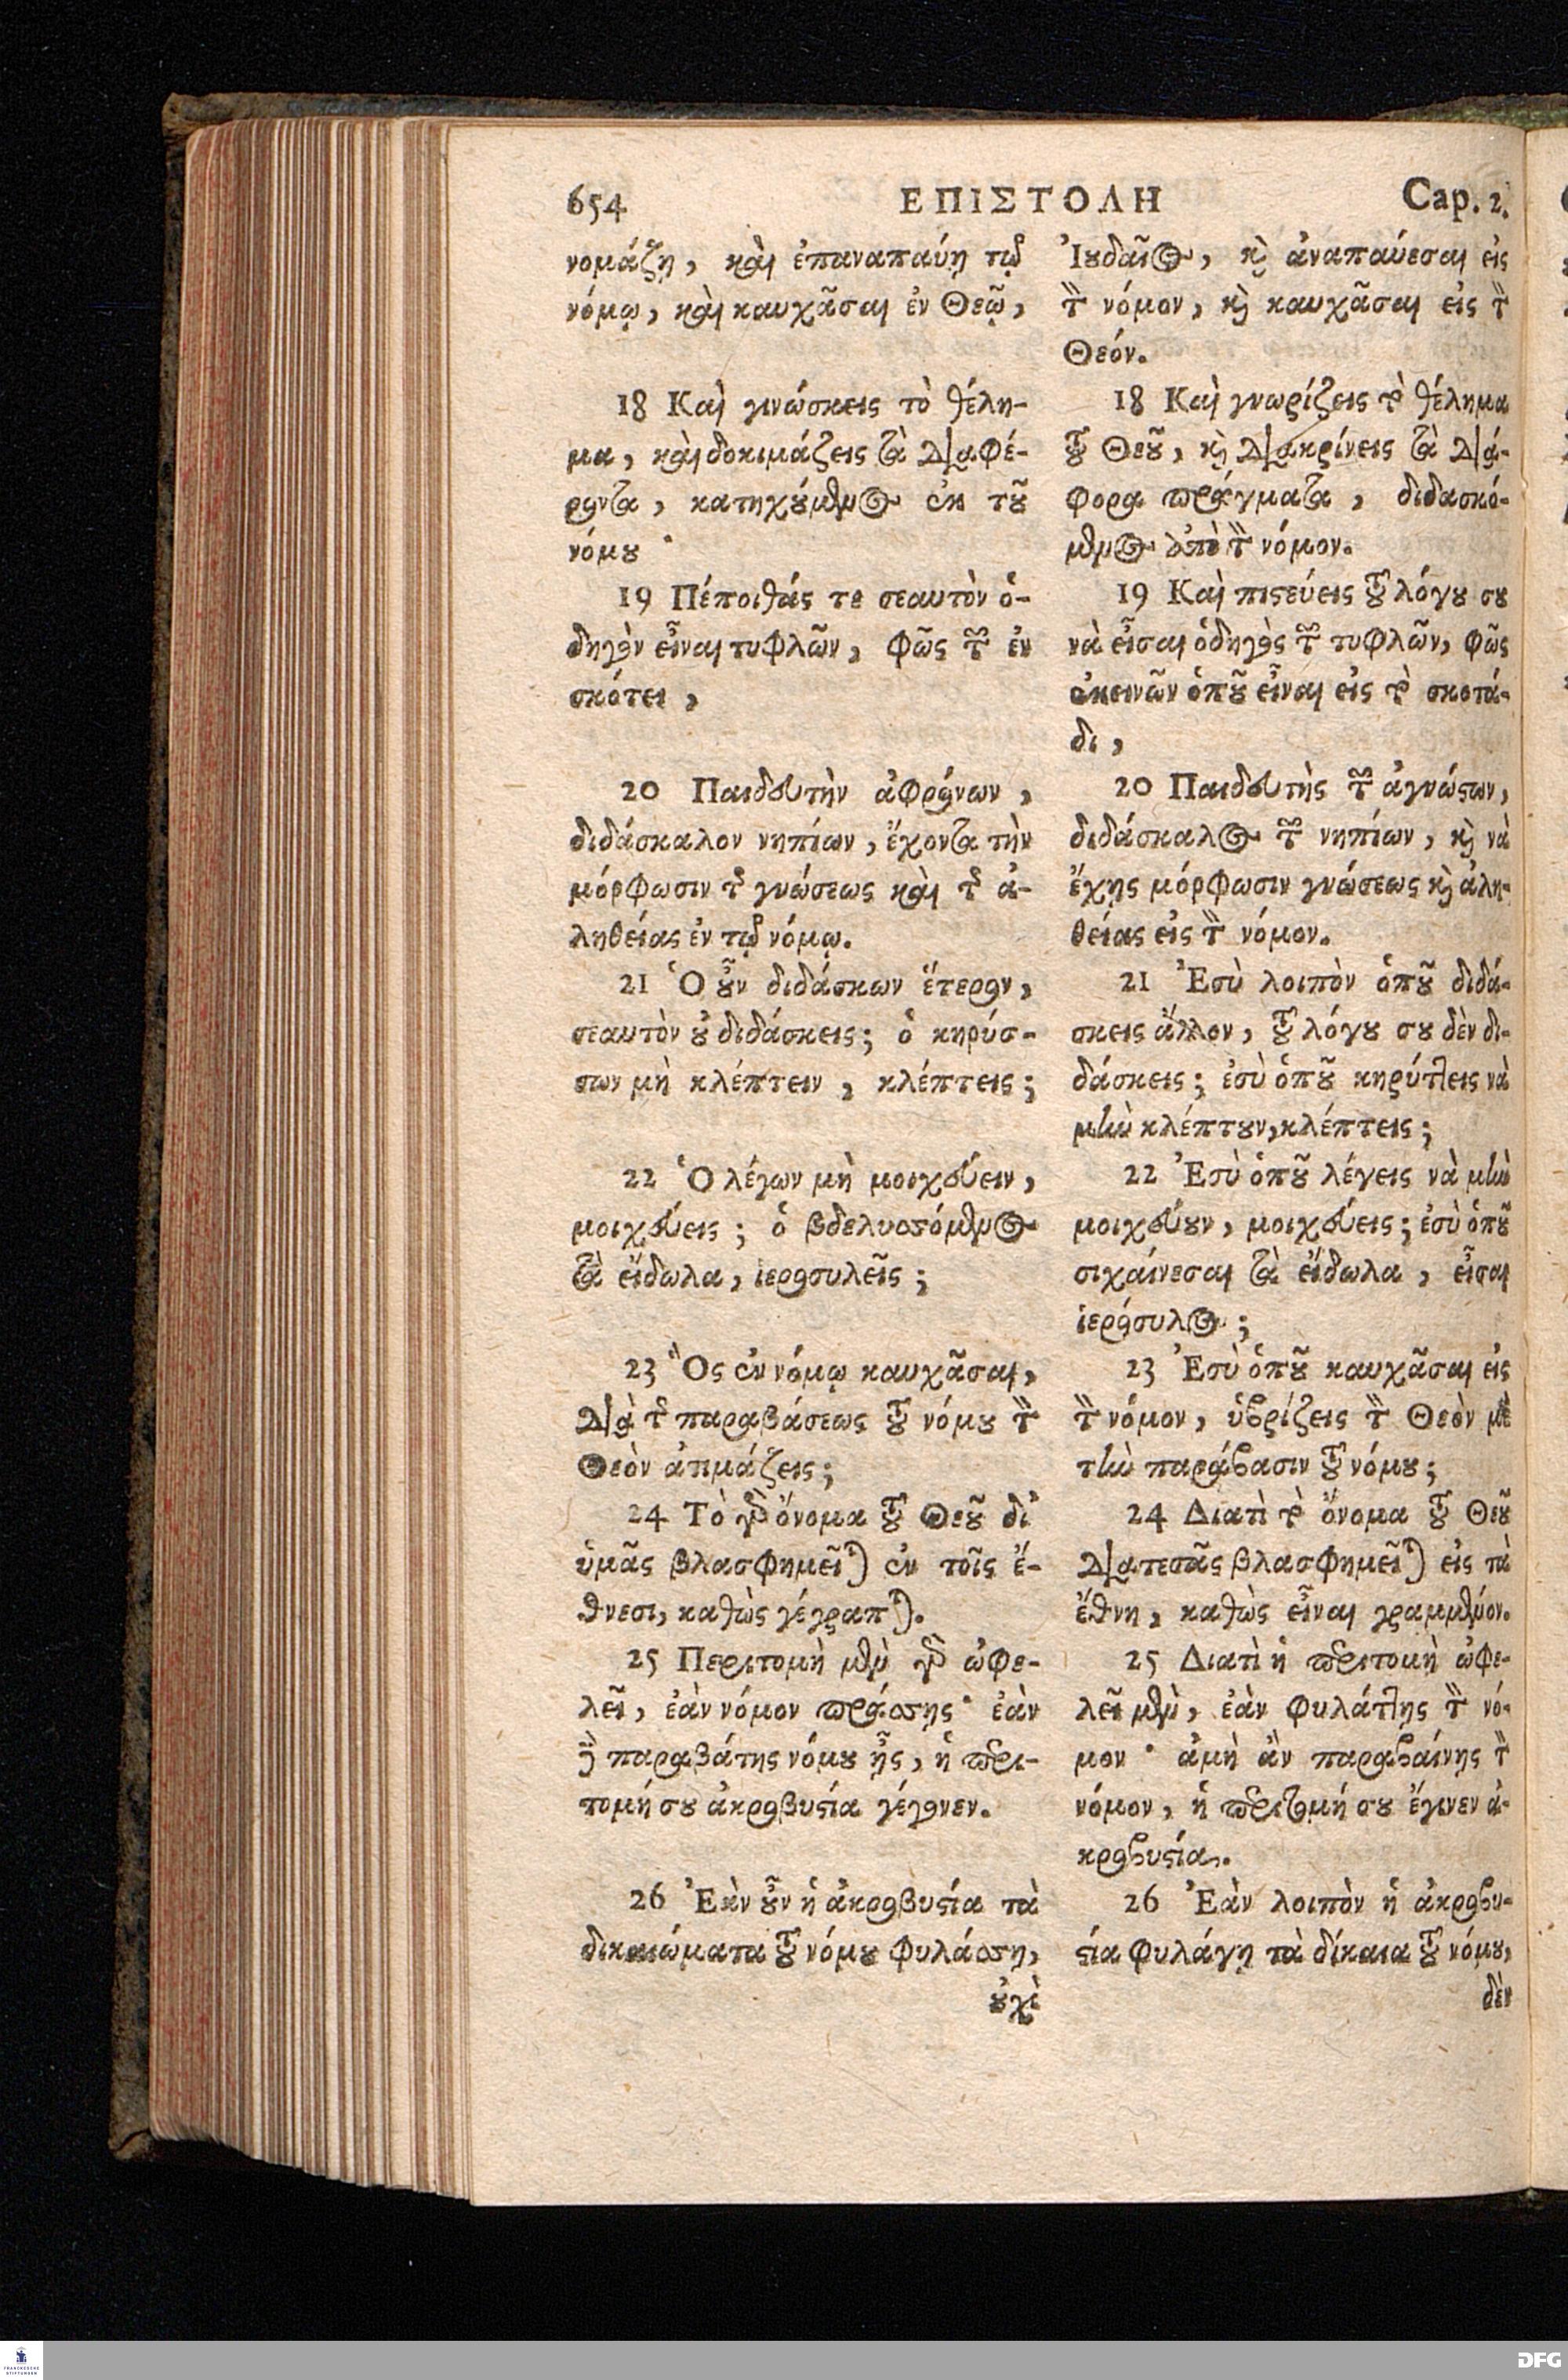 654 ΕΠΙΣΤΟΛΗ Cap. 2.
νομάζῃ, καὶ ἐπαναπαύῃ τῷ
νόμῳ, καὶ καυχᾶσαι ἐν Θεῷ,
18 Καὶ γινώσκεις τὸ θέλη-
μα, καὶ δοκιμάζεις τὰ διαφέ-
ροντα, κατηχούμενος ἐκ τοῦ
νόμου·
19 Πέποιθάς τε σεαυτὸν ὁ-
δηγὸν εἶναι τυφλῶν, φῶς τῶν ἐν
σκότει,
20 Παιδευτὴν ἀφρόνων,
διδάσκαλον νηπίων, ἔχοντα τὴν
μόρφωσιν τῆς γνώσεως καὶ τῆς ἀ-
ληθείας ἐν τῷ νόμῳ.
21 Ὁ οὖν διδάσκων ἕτερον,
σεαυτὸν οὐ διδάσκεις; ὁ κηρύσ-
σων μὴ κλέπτειν, κλέπτεις;
22 Ὁ λέγων μὴ μοιχεύειν,
μοιχεύεις; ὁ βδελυσσόμενος
τὰ εἴδωλα, ἱεροσυλεῖς;
23 Ὃς ἐν νόμῳ καυχᾶσαι,
διὰ τῆς παραβάσεως τοῦ νόμου τὸν
Θεὸν ἀτιμάζεις;
24 Τὸ γὰρ ὄνομα τοῦ Θεοῦ δι'
ὑμᾶς βλασφημεῖται ἐν τοῖς ἔ-
θνεσι, καθὼς γέγραπται.
25 Περιτομὴ μὲν γὰρ ὠφε-
λεῖ, ἐὰν νόμον πράσσῃς· ἐὰν
δὲ παραβάτης νόμου ᾖς, ἡ περι-
τομή σου ἀκροβυστία γέγονεν.
26 Ἐὰν οὖν ἡ ἀκροβυστία τὰ
δικαιώματα τοῦ νόμου φυλάσσῃ,
οὐχὶ
Ἰουδαῖος, καὶ ἀναπαύεσαι εἰς
τὸν νόμον, καὶ καυχᾶσαι εἰς τὸν
Θεόν.
18 Καὶ γνωρίζεις τὸ θέλημα
τοῦ Θεοῦ, καὶ διακρίνεις τὰ διά-
φορα πράγματα, διδασκό-
μενος ἀπὸ τὸν νόμον.
19 Καὶ πιστεύεις τοῦ λόγου σου
νὰ εἶσαι ὁδηγὸς τῶν τυφλῶν, φῶς
ἐκεινῶν ὁποῦ εἶναι εἰς τὸ σκοτά-
δι,
20 Παιδευτὴς τῶν ἀγνώστων,
διδάσκαλος τῶν νηπίων, καὶ νὰ
ἔχῃς μόρφωσιν γνώσεως καὶ ἀλη-
θείας εἰς τὸν νόμον.
21 Ἐσὺ λοιπὸν ὁποῦ διδά-
σκεις ἄλλον, τοῦ λόγου σου δὲν δι-
δάσκεις; ἐσὺ ὁποῦ κηρύττεις νὰ
μὴν κλέπτουν, κλέπτεις;
22 Ἐσὺ ὁποῦ λέγεις νὰ μὴν
μοιχεύουν, μοιχεύεις; ἐσὺ ὁποῦ
σιχαίνεσαι τὰ εἴδωλα, εἶσαι
ἱερόσυλος;
23 Ἐσὺ ὁποῦ καυχᾶσαι εἰς
τὸν νόμον, ὑβρίζεις τὸν Θεὸν μὲ
τὴν παράβασιν τοῦ νόμου;
24 Διατὶ τὸ ὄνομα τοῦ Θεοῦ
διατεσᾶς βλασφημεῖται εἰς τὰ
ἔθνη, καθὼς εἶναι γραμμένον.
25 Διατὶ ἡ περιτομὴ ὠφε-
λεῖ μὲν, ἐὰν φυλάττῃς τὸν νό-
μον· ἀμὴ ἂν παραβαίνῃς τὸν
νόμον, ἡ περιτομή σου ἔγινεν ἀ-
κροβυστία.
26 Ἐὰν λοιπὸν ἡ ἀκροβυ-
στία φυλάγῃ τὰ δίκαια τοῦ νόμου,
δὲν
FRANCKESCHE
STIFTUNGEN
DFG